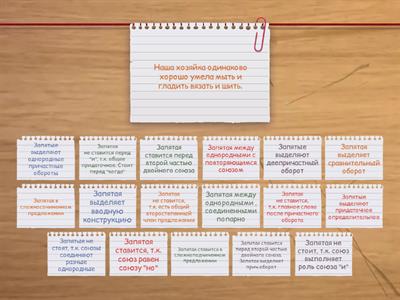 Наша хозяйка одинаково
хорошо умела мыть и
гладить вязать и шить.
Запятые
выделяют
однородные
причастные
обороты
Запятая
не ставится перед
"и", т.к. общее
придаточное. Стоит
перед "когда"
Запятая
ставится перед
второй частью
двойного союза
Запятая между
однородными с
повторяющимся
союзом
Запятые
выделяют
деепричастный
оборот
Запятая
выделяет
сравнительный
оборот
Запятая в
сложносочиненном
предложении
Запятая
выделяет
вводную
конструкцию
Запятая
не ставится,
т.к. есть общий
второстепенный
член предложения
Запятая между
однородными ,
соединенными
попарно
Запятая
не ставится,
т.к. главное слово
после причастного
оборота
Запятые
выделяют
придаточное
определительное
Запятые не
стоят, т.к. союзы
соединяют
разные
однородные
Запятая
ставится, т.к.
союз равен
союзу "но"
Запятая ставится в
сложноподчиненном
предложении
Запятая ставится
перед второй частью
двойного союза.
Запятая не
стоит, т.к. союз
выполняет
роль союза "и"